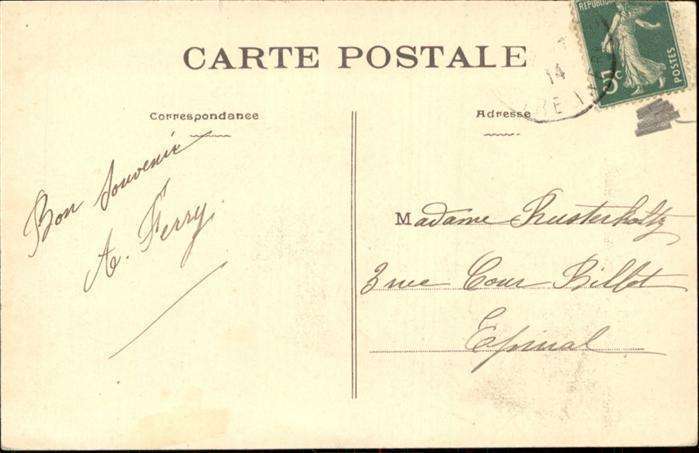 CARTE POSTALE
Correspondance
Adresse
Bon souvenir
A. Ferry
Madame Rusterholtz
3 rue Cour Billot
Epinal
5c
POSTES
14